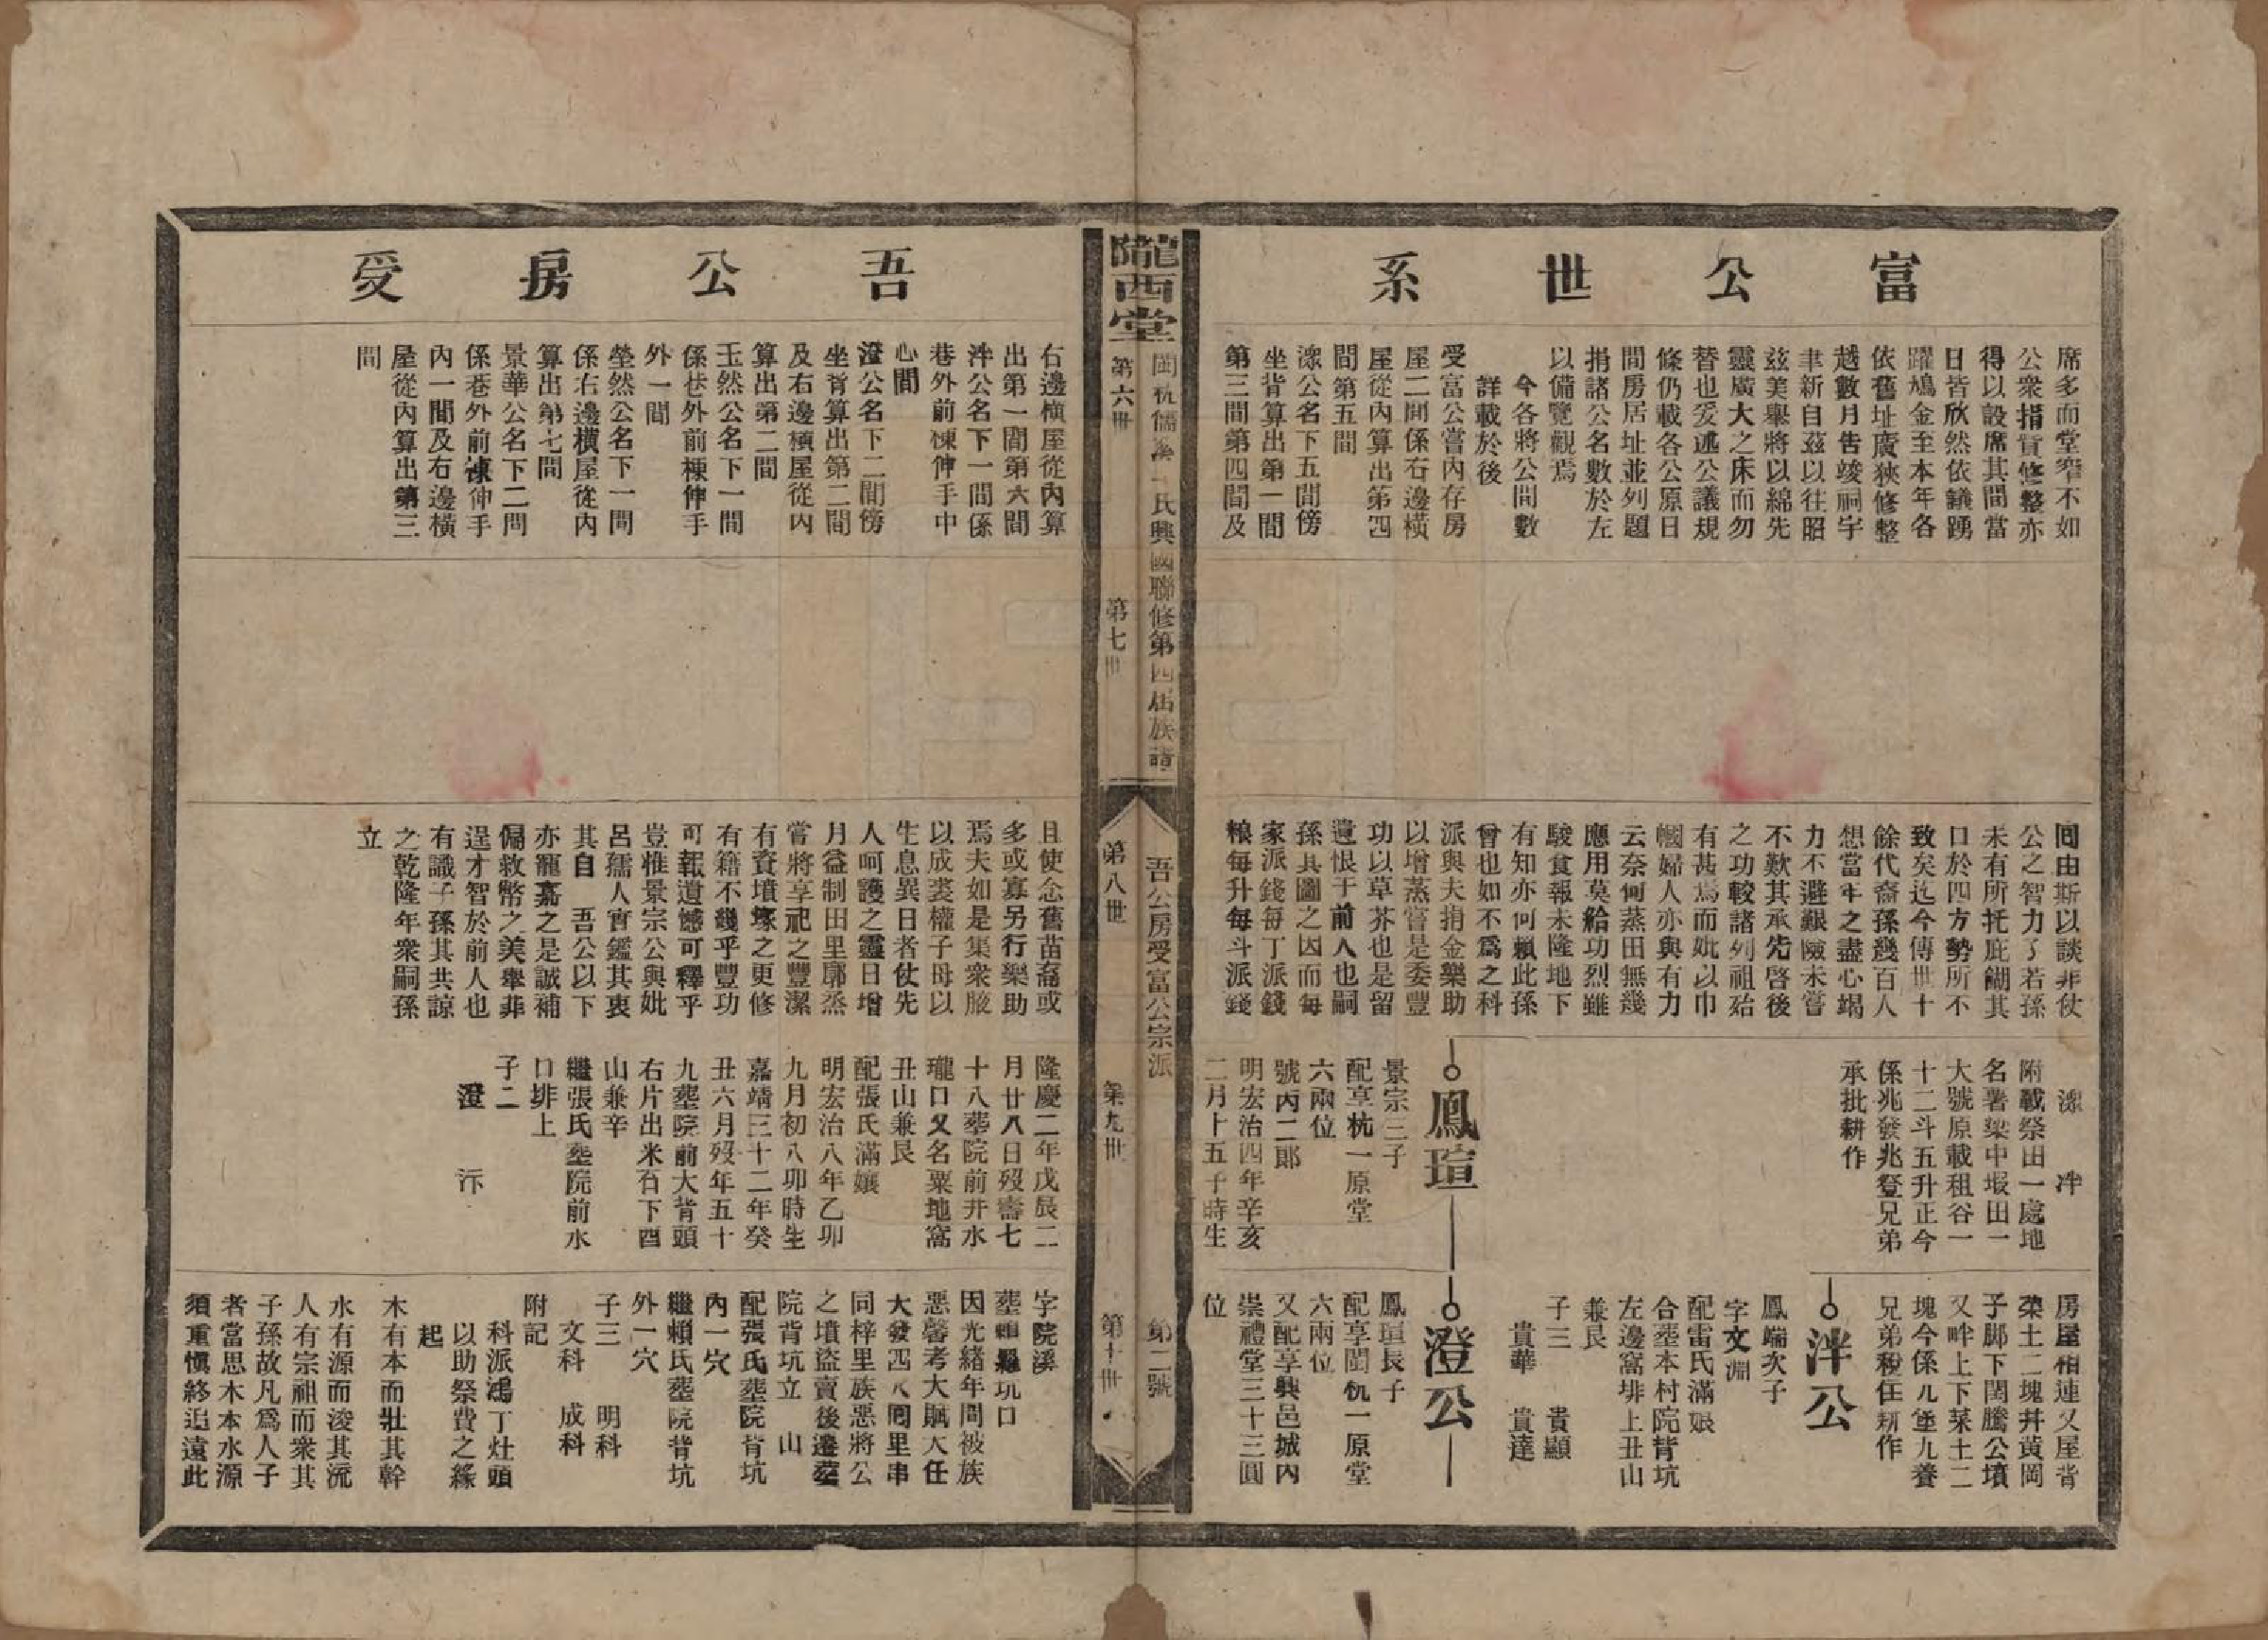 富公世系
席多而堂窄不如
公衆捐貲修整亦
得以設席其間當
日皆欣然依議踴
躍鳩金至本年各
依舊址廣狹修整
越數月告竣祠宇
聿新自茲以往昭
茲美舉將以綿先
靈廣大之床而勿
替也爰述公議規
條仍載各公原日
間房居址並列題
捐諸公名數於左
以備覽觀焉
今各將公間數
詳載於後
受富公嘗內存房
屋二間係右邊橫
屋從內算出第四
間第五間
濴公名下五間傍
坐背算出第一間
第三間第四間及
同由斯以談非仗
公之智力了若孫
未有所托庇餬其
口於四方勢所不
致矣迄今傳世十
餘代裔孫幾百人
想當年之盡心竭
力不避艱險未嘗
不歎其承先啓後
之功較諸列祖殆
有甚焉而妣以巾
幗婦人亦與有力
云奈何蒸田無幾
應用莫給功烈雖
駿食報未隆地下
有知亦何賴此孫
曾也如不爲之科
派與夫捐金樂助
以增蒸嘗是委豐
功以草芥也是留
遺恨于前人也嗣
孫具圖之因而每
家派錢每丁派錢
粮每升每斗派錢
濴 泮
附載祭田一處地
名署梁中塅田一
大號原載租谷一
十二斗五升正今
係兆發兆登兄弟
承批耕作
鳳瑄
景宗三子
配享杭一原堂
六兩位
號丙二郎
明宏治四年辛亥
二月十五子時生
房屋相連又屋背
菜土二塊并黃岡
子脚下閏騰公墳
又畔上下菜土二
塊今係九堡九養
兄弟稅住耕作
泮公
鳳端次子
字文淵
配雷氏滿娘
合塟本村院背坑
左邊窩埤上丑山
兼艮
子三 貴顯
貴華 貴達
澄公
鳳瑄長子
配享閩杭一原堂
六兩位
又配享興邑城內
崇禮堂三十三圓
位
隴西堂
閩杭儒溪 氏興國聯修第四屆族譜
第六世
第七世
第八世
第九世
第十世
吾公房受富公宗派
第二號
吾公房受
右邊橫屋從內算
出第一間第六間
泮公名下一間係
巷外前棟伸手中
心間
澄公名下二間傍
坐背算出第二間
及右邊橫屋從內
算出第二間
玉然公名下一間
係巷外前棟伸手
外一間
塋然公名下一間
係右邊橫屋從內
算出第七間
景華公名下二間
係巷外前棟伸手
內一間及右邊橫
屋從內算出第三
間
且使念舊苗裔或
多或寡另行樂助
焉夫如是集衆腋
以成裘權子母以
生息異日者仗先
人呵護之靈日增
月益制田里廓烝
嘗將享祀之豐潔
有資墳塚之更修
有籍不幾乎豐功
可報遺憾可釋乎
豈惟景宗公與妣
呂孺人實鑑其衷
其自 吾公以下
亦寵嘉之是誠補
偏救幣之美舉非
逞才智於前人也
有識子孫其共諒
之乾隆年衆嗣孫
立
隆慶二年戊辰二
月廿八日歿壽七
十八葬院前井水
壠口又名粟地窩
丑山兼艮
配張氏滿孃
明宏治八年乙卯
九月初八卯時生
嘉靖三十二年癸
丑六月歿年五十
九葬院前大背頭
右片出米石下酉
山兼辛
繼張氏塟院前水
口埤上
子二
澄 汴
字院溪
塟贛縣坑口
因光緒年間被族
惡馨考大賦大任
大發四人同里串
同梓里族惡將公
之墳盜賣後遷塟
院背坑立 山
配張氏塟院背坑
內一穴
繼賴氏葬院背坑
外一穴
子三 明科
文科 成科
附記
科派鴻丁灶頭
以助祭費之緣
起
木有本而壯其幹
水有源而浚其流
人有宗祖而衆其
子孫故凡爲人子
者當思木本水源
須重愼終追遠此